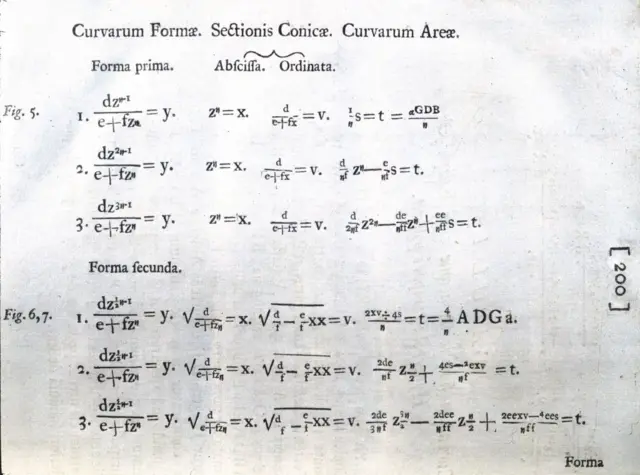 Curvarum Formæ. Sectionis Conicæ. Curvarum Areæ.
Forma prima. Abſciſſa. Ordinata.
Fig. 5. 1. dzⁿ⁻¹/e+fzⁿ = y. zⁿ=x. d/e+fx =v. 1/n s=t = αGDB/n
2. dz²ⁿ⁻¹/e+fzⁿ = y. zⁿ=x. d/e+fx =v. d/nf zⁿ—e/f s=t.
3. dz³ⁿ⁻¹/e+fzⁿ = y. zⁿ=x. d/e+fx =v. d/2nf z²ⁿ—de/nff zⁿ+ee/nff s=t.
Forma ſecunda.
[200]
Fig. 6,7. 1. dz½ⁿ⁻¹/e+fzⁿ = y. √d/e+fzⁿ =x. √d/f—e/f xx=v. 2xv÷4s/n =t=4/n ADGa.
2. dz½ⁿ⁻¹/e+fzⁿ = y. √d/e+fzⁿ =x. √d/f—e/f xx=v. 2de/nf z n/2 + 4es—2exv/nf =t.
3. dz½ⁿ⁻¹/e+fzⁿ = y. √d/e+fzⁿ =x. √d/f—e/f xx=v. 2de/3nf z 3n/2 — 2dee/nff z n/2 + 2eexv—4ees/nff =t.
Forma